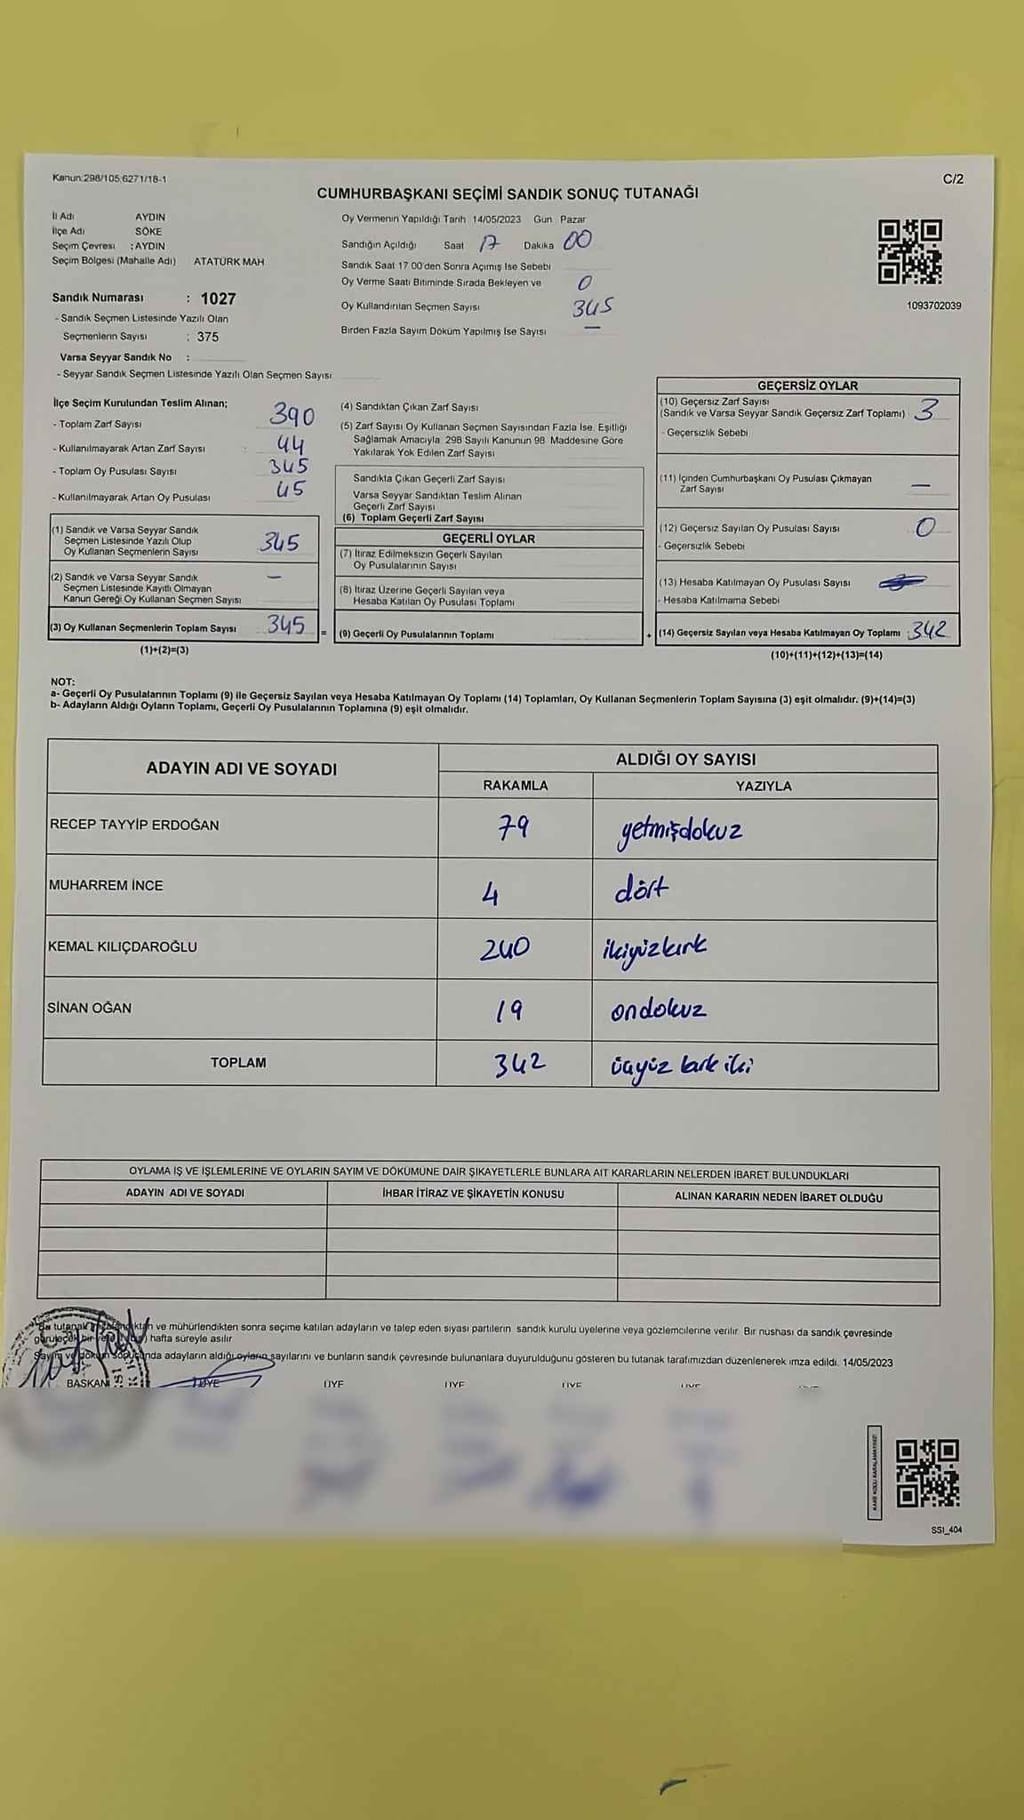 Kanun:298/105;6271/18-1
C/2
CUMHURBAŞKANI SEÇİMİ SANDIK SONUÇ TUTANAĞI
İl Adı AYDIN
İlçe Adı SÖKE
Seçim Çevresi : AYDIN
Seçim Bölgesi (Mahalle Adı) ATATÜRK MAH
Sandık Numarası : 1027
- Sandık Seçmen Listesinde Yazılı Olan
Seçmenlerin Sayısı : 375
Varsa Seyyar Sandık No :
- Seyyar Sandık Seçmen Listesinde Yazılı Olan Seçmen Sayısı
Oy Vermenin Yapıldığı Tarih 14/05/2023 Gün Pazar
Sandığın Açıldığı Saat 17 Dakika 00
Sandık Saat 17 00'den Sonra Açımış İse Sebebi
Oy Verme Saati Bitiminde Sırada Bekleyen ve 0
Oy Kullandırılan Seçmen Sayısı 345
Birden Fazla Sayım Döküm Yapılmış İse Sayısı —
1093702039
İlçe Seçim Kurulundan Teslim Alınan;
- Toplam Zarf Sayısı 390
- Kullanılmayarak Artan Zarf Sayısı : 44
- Toplam Oy Pusulası Sayısı 345
- Kullanılmayarak Artan Oy Pusulası 45
(1) Sandık ve Varsa Seyyar Sandık
Seçmen Listesinde Yazılı Olup
Oy Kullanan Seçmenlerin Sayısı 345
(2) Sandık ve Varsa Seyyar Sandık —
Seçmen Listesinde Kayıtlı Olmayan
Kanun Gereği Oy Kullanan Seçmen Sayısı
(3) Oy Kullanan Seçmenlerin Toplam Sayısı 345 =
(1)+(2)=(3)
(4) Sandıktan Çıkan Zarf Sayısı
(5) Zarf Sayısı Oy Kullanan Seçmen Sayısından Fazla İse, Eşitliği
Sağlamak Amacıyla 298 Sayılı Kanunun 98 Maddesine Göre
Yakılarak Yok Edilen Zarf Sayısı
Sandıkta Çıkan Geçerli Zarf Sayısı
Varsa Seyyar Sandıktan Teslim Alınan
Geçerli Zarf Sayısı
(6) Toplam Geçerli Zarf Sayısı
GEÇERLİ OYLAR
(7) İtiraz Edilmeksizin Geçerli Sayılan
Oy Pusulalarının Sayısı
(8) İtiraz Üzerine Geçerli Sayılan veya
Hesaba Katılan Oy Pusulası Toplamı
(9) Geçerli Oy Pusulalarının Toplamı +
GEÇERSİZ OYLAR
(10) Geçersiz Zarf Sayısı
(Sandık ve Varsa Seyyar Sandık Geçersiz Zarf Toplamı) 3
- Geçersizlik Sebebi
(11) İçinden Cumhurbaşkanı Oy Pusulası Çıkmayan
Zarf Sayısı —
(12) Geçersiz Sayılan Oy Pusulası Sayısı 0
- Geçersizlik Sebebi
(13) Hesaba Katılmayan Oy Pusulası Sayısı
- Hesaba Katılmama Sebebi
(14) Geçersiz Sayılan veya Hesaba Katılmayan Oy Toplamı : 342
(10)+(11)+(12)+(13)=(14)
NOT:
a- Geçerli Oy Pusulalarının Toplamı (9) ile Geçersiz Sayılan veya Hesaba Katılmayan Oy Toplamı (14) Toplamları, Oy Kullanan Seçmenlerin Toplam Sayısına (3) eşit olmalıdır. (9)+(14)=(3)
b- Adayların Aldığı Oyların Toplamı, Geçerli Oy Pusulalarının Toplamına (9) eşit olmalıdır.
ADAYIN ADI VE SOYADI
ALDIĞI OY SAYISI
RAKAMLA YAZIYLA
RECEP TAYYİP ERDOĞAN 79 yetmişdokuz
MUHARREM İNCE 4 dört
KEMAL KILIÇDAROĞLU 240 ikiyüzkırk
SİNAN OĞAN 19 ondokuz
TOPLAM 342 üçyüz kırk iki
OYLAMA İŞ VE İŞLEMLERİNE VE OYLARIN SAYIM VE DÖKÜMÜNE DAİR ŞİKAYETLERLE BUNLARA AİT KARARLARIN NELERDEN İBARET BULUNDUKLARI
ADAYIN ADI VE SOYADI İHBAR İTİRAZ VE ŞİKAYETİN KONUSU ALINAN KARARIN NEDEN İBARET OLDUĞU
Bu tutanak ve mühürlendikten sonra seçime katılan adayların ve talep eden siyasi partilerin sandık kurulu üyelerine veya gözlemcilerine verilir. Bir nushası da sandık çevresinde
hafta süreyle asılır
Sayım ve döküm sonucunda adayların aldığı oyların sayılarını ve bunların sandık çevresinde bulunanlara duyurulduğunu gösteren bu tutanak tarafımızdan düzenlenerek imza edildi. 14/05/2023
BAŞKAN ÜYE ÜYE ÜYE ÜYE
SSI_404